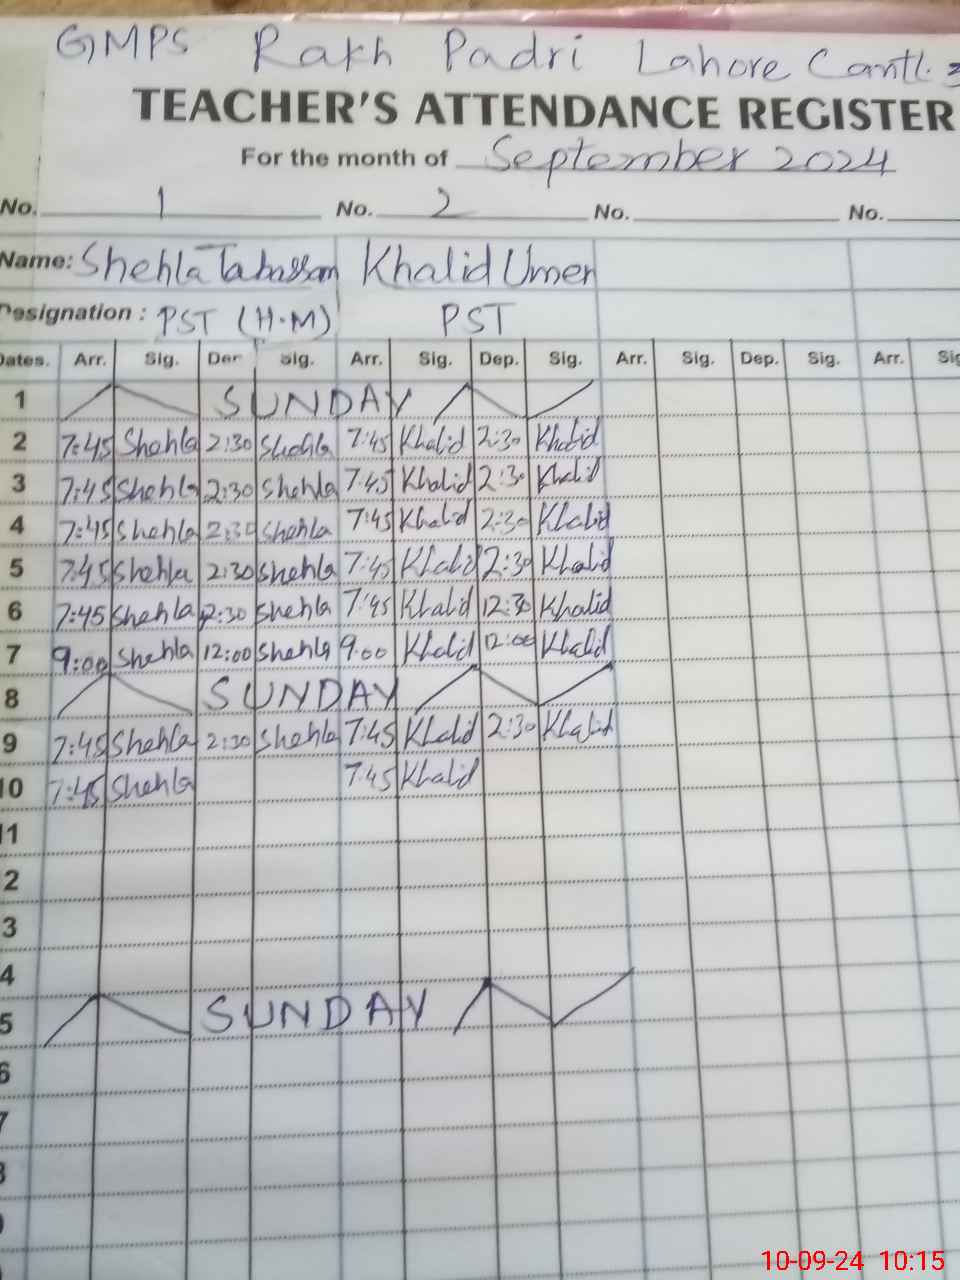 GMPS Rakh Padri Lahore Cantt.
TEACHER'S ATTENDANCE REGISTER
For the month of September 2024
No. 1 No. 2 No. No.
Name: Shehla Tabassam Khalid Umer
Designation : PST (H.M) PST
Dates. Arr. Sig. Dep. Sig. Arr. Sig. Dep. Sig. Arr. Sig. Dep. Sig. Arr. Sig
1 SUNDAY
2 7:45 Shehla 2:30 Shehla 7:45 Khalid 2:30 Khalid
3 7:45 Shehla 2:30 Shehla 7:45 Khalid 2:30 Khalid
4 7:45 Shehla 2:30 Shehla 7:45 Khalid 2:30 Khalid
5 7:45 Shehla 2:30 Shehla 7:45 Khalid 2:30 Khalid
6 7:45 Shehla 12:30 Shehla 7:45 Khalid 12:30 Khalid
7 9:00 Shehla 12:00 Shehla 9:00 Khalid 12:00 Khalid
8 SUNDAY
9 7:45 Shehla 2:30 Shehla 7:45 Khalid 2:30 Khalid
10 7:45 Shehla 7:45 Khalid
11
2
3
4
5 SUNDAY
6
7
8
10-09-24 10:15